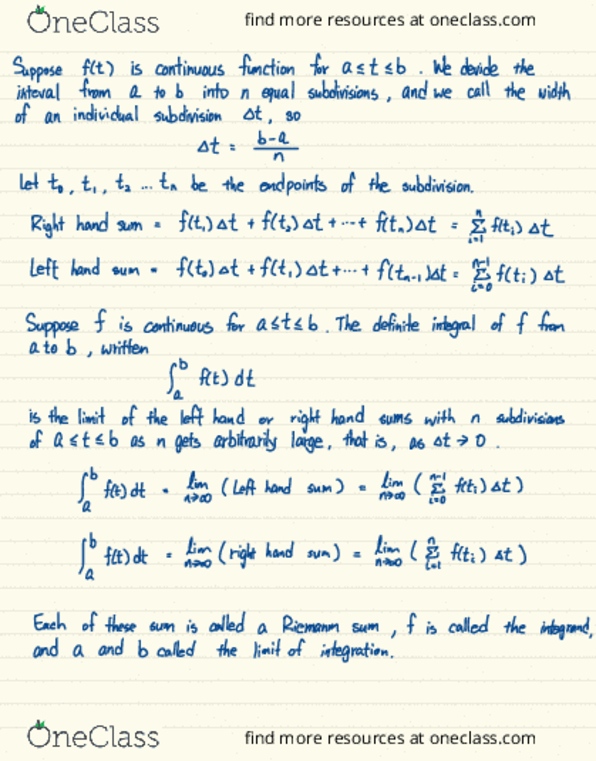 OneClass find more resources at oneclass.com
Suppose f(t) is continuous function for a≤t≤b . We devide the
interval from a to b into n equal subdivisions , and we call the width
of an individual subdivision Δt , so
Δt = b-a / n
Let t₀ , t₁ , t₂ ... tₙ be the endpoints of the subdivision.
Right hand sum = f(t₁)Δt + f(t₂)Δt + ... + f(tₙ)Δt = Σᵢ₌₁ⁿ f(tᵢ) Δt
Left hand sum = f(t₀)Δt + f(t₁)Δt + ... + f(tₙ₋₁)Δt = Σᵢ₌₀ⁿ⁻¹ f(tᵢ) Δt
Suppose f is continuous for a≤t≤b . The definite integral of f from
a to b , written
∫ₐᵇ f(t) dt
is the limit of the left hand or right hand sums with n subdivisions
of a≤t≤b as n gets arbitrarily large, that is, as Δt → 0 .
∫ₐᵇ f(t) dt = lim n→∞ ( Left hand sum ) = lim n→∞ ( Σᵢ₌₀ⁿ⁻¹ f(tᵢ) Δt )
∫ₐᵇ f(t) dt = lim n→∞ ( right hand sum ) = lim n→∞ ( Σᵢ₌₁ⁿ f(tᵢ) Δt )
Each of these sum is called a Riemann sum , f is called the integrand,
and a and b called the limit of integration.
OneClass find more resources at oneclass.com